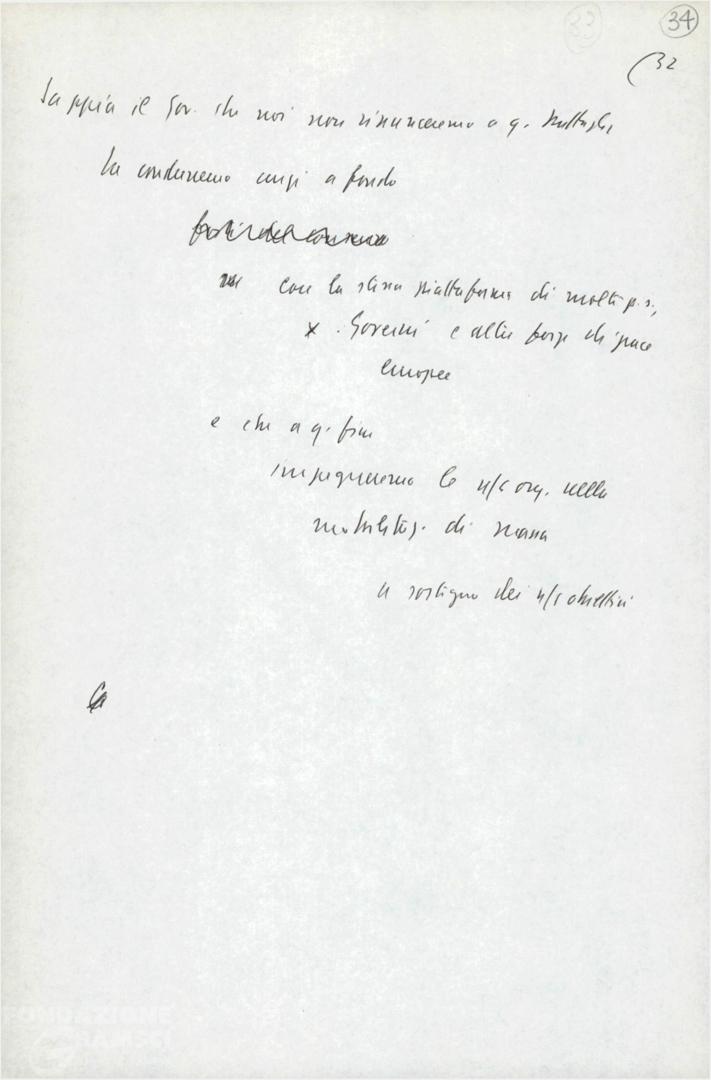 33
34
(32
Sappia il Gov. che noi non rinunceremo a q. battaglia
La condurremo anzi a fondo
con la stessa piattaforma di molti p.s.,
x . Governi e altre forze di pace
europee
e che a q. fine
impegneremo le n/s org. nella
mobilitaz. di massa
a sostegno dei n/s obiettivi
FONDAZIONE
GRAMSCI